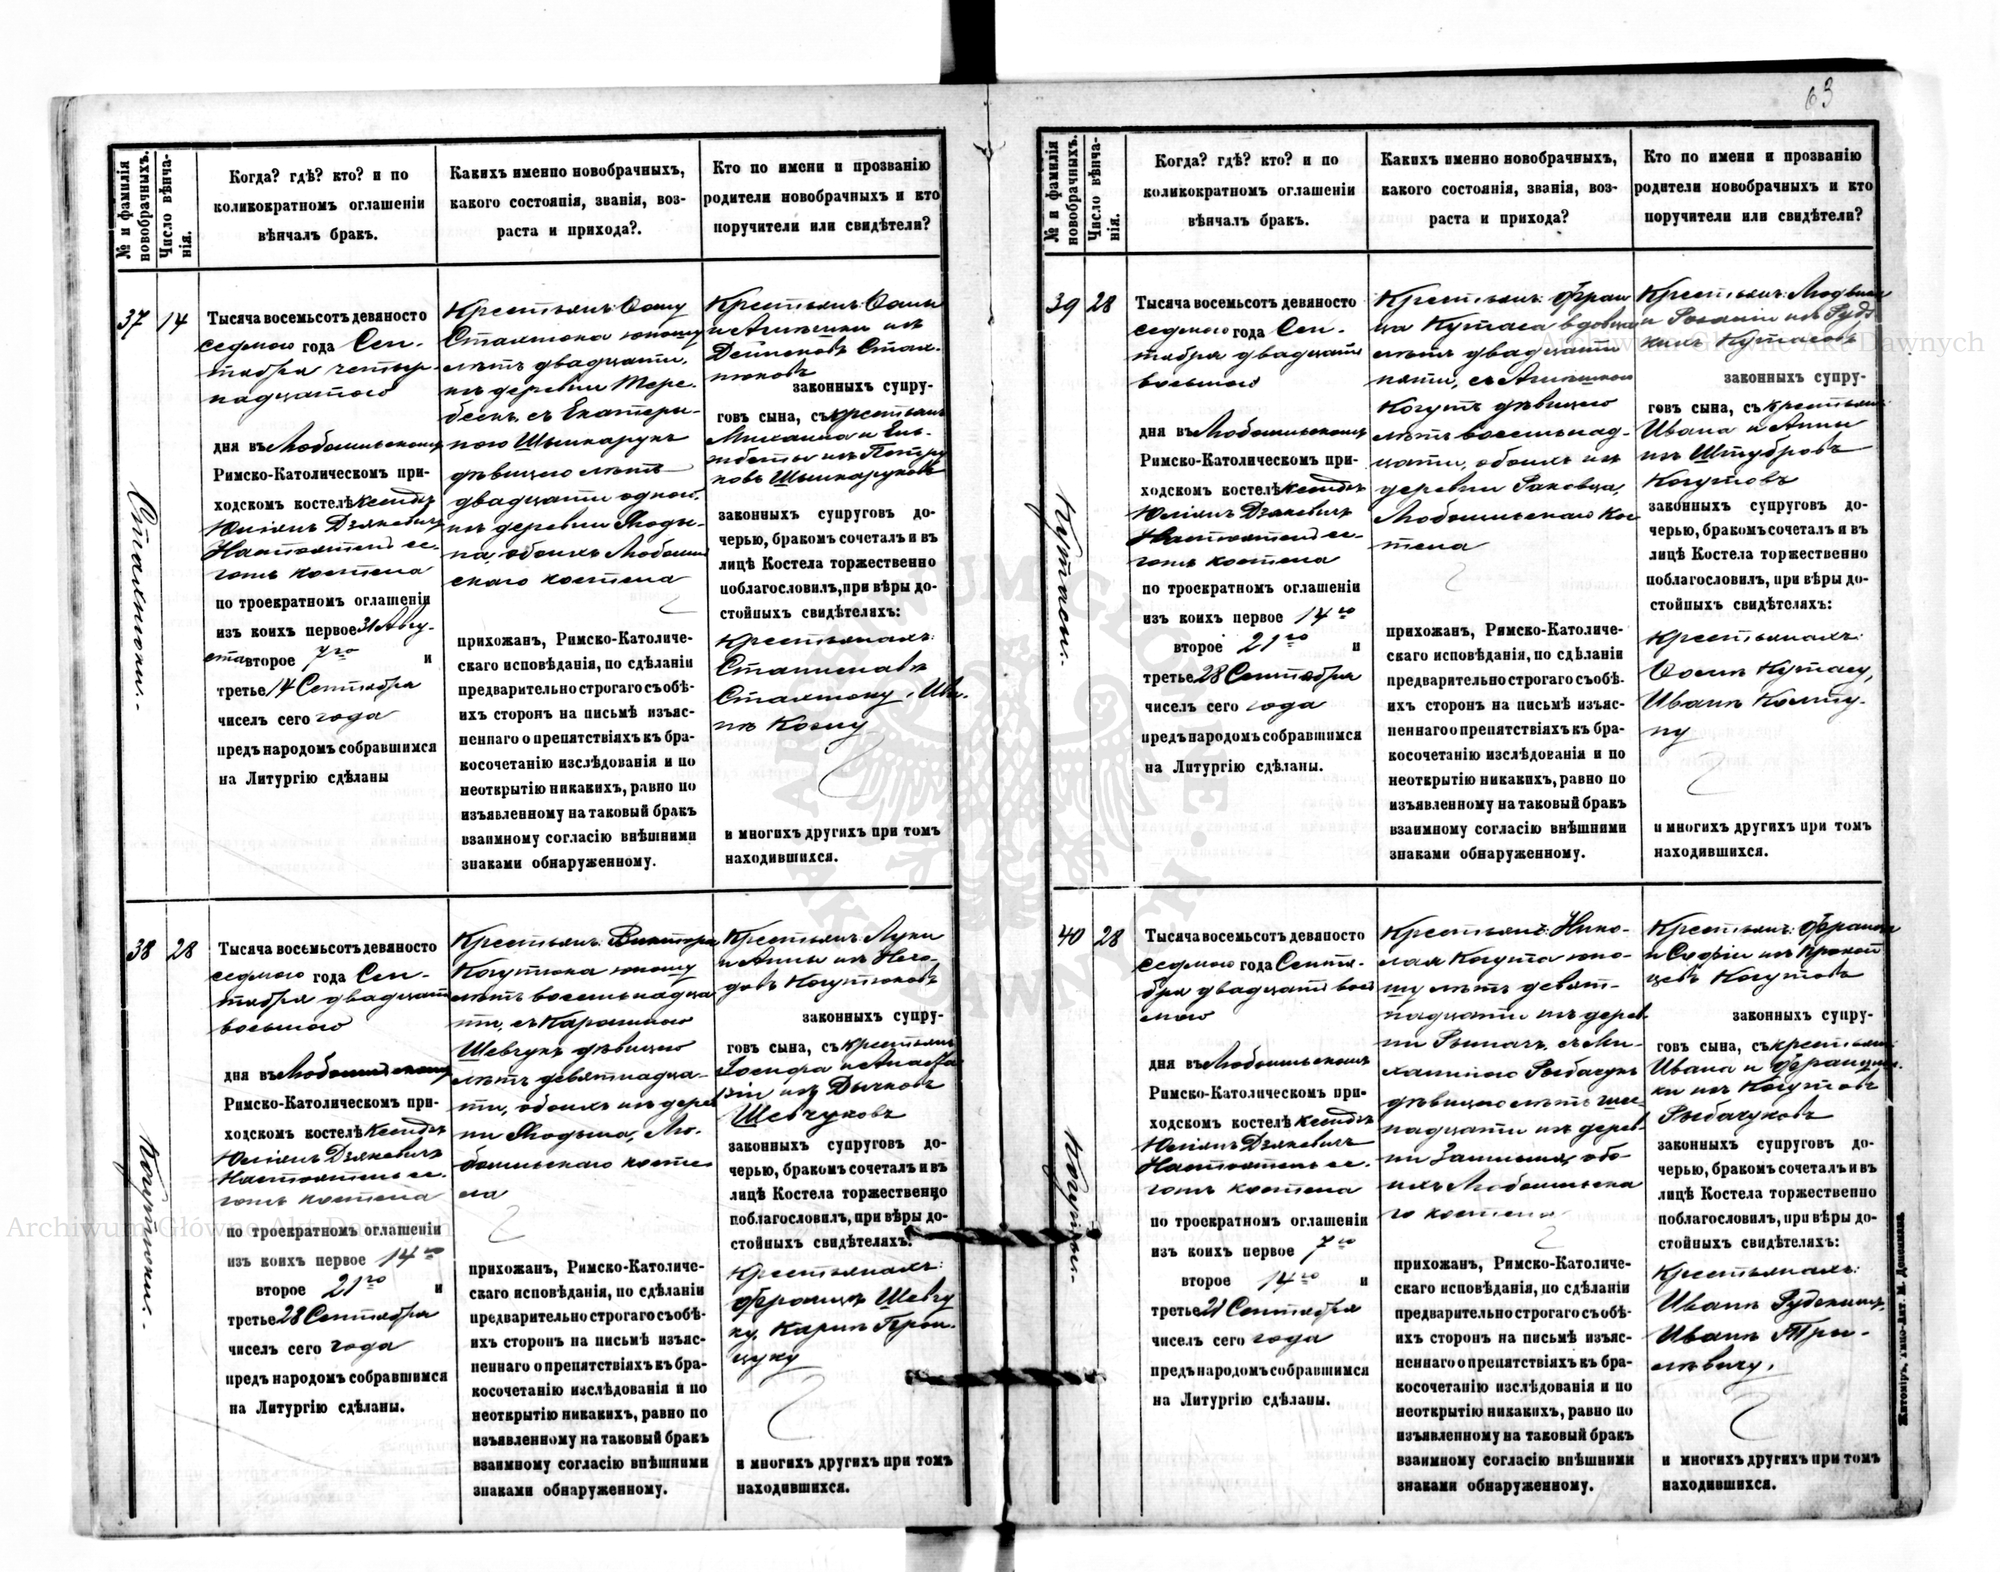 63
№ и фамилія новобрачныхъ.
Число вѣнчанія.
Когда? гдѣ? кто? и по
коликократномъ оглашеніи
вѣнчалъ бракъ.
Какихъ именно новобрачныхъ,
какого состоянія, званія, воз-
раста и прихода?.
Кто по имени и прозванію
родители новобрачныхъ и кто
поручители или свидѣтели?
37
14
Стахнюки.
Тысяча восемьсотъ девяносто
седмого года Сен-
тября четыр-
надцатого
дня въ Любомльскомъ
Римско-Католическомъ при-
ходскомъ костелѣ Ксендзъ
Юліянъ Дзякевичъ
Настоятель се-
гожъ костела
по троекратномъ оглашеніи
изъ коихъ первое 31 Авгу-
ста второе 7го и
третье 14 Сентября
чиселъ сего года
предъ народомъ собравшимся
на Литургію сдѣланы
Крестьян:
Стахнюка юношу
лѣтъ двадцати,
изъ деревни Тере-
беекъ, съ Екатери-
ною
дѣвицею лѣтъ
двадцати одной,
изъ деревни Ягоды-
на, обоихъ Любомль-
скаго костела
прихожанъ, Римско-Католиче-
скаго исповѣданія, по сдѣланіи
предварительно строгаго съ обѣ-
ихъ сторонъ на письмѣ изъяс-
неннаго о препятствіяхъ къ бра-
косочетанію изслѣдованія и по
неоткрытію никакихъ, равно по
изъявленному на таковый бракъ
взаимному согласію внѣшними
знаками обнаруженному.
Крестьян:
и Агнешки изъ
Стах-
нюковъ
законныхъ супру-
говъ сына, съ крестьян:
Михаила и Ель-
жбеты изъ Петру-
ковъ
законныхъ супруговъ до-
черью, бракомъ сочеталъ и въ
лицѣ Костела торжественно
поблагословилъ, при вѣры до-
стойныхъ свидѣтеляхъ:
Крестьянахъ:
Станиславѣ
Стахнюку, Ива-
нѣ Козлу
и многихъ другихъ при томъ
находившихся.
38
28
Когутюки.
Тысяча восемьсотъ девяносто
седмого года Сен-
тября двадцать
восьмого
дня въ Любомльскомъ
Римско-Католическомъ при-
ходскомъ костелѣ Ксендзъ
Юліянъ Дзякевичъ
Настоятель се-
гожъ костела
по троекратномъ оглашеніи
изъ коихъ первое 14го
второе 21го и
третье 28 Сентября
чиселъ сего года
предъ народомъ собравшимся
на Литургію сдѣланы.
Крестьян: Виктора
Когутюка юношу
лѣтъ восемьнадца-
ти, съ Каролиною
Шевчукъ дѣвицею
лѣтъ девятнадца-
ти, обоихъ изъ дерев
ни Ягодына, Лю-
бомльскаго косте-
ла
прихожанъ, Римско-Католиче-
скаго исповѣданія, по сдѣланіи
предварительно строгаго съ обѣ-
ихъ сторонъ на письмѣ изъяс-
неннаго о препятствіяхъ къ бра-
косочетанію изслѣдованія и по
неоткрытію никакихъ, равно по
изъявленному на таковый бракъ
взаимному согласію внѣшними
знаками обнаруженному.
Крестьян: Луки
и Анны изъ
Когутюковъ
законныхъ супру-
говъ сына, съ крестьян:
Іосифа и Анаста-
зіи изъ Дычковъ
Шевчуковъ
законныхъ супруговъ до-
черью, бракомъ сочеталъ и въ
лицѣ Костела торжественно
поблагословилъ, при вѣры до-
стойныхъ свидѣтеляхъ:
Крестьянахъ:
Францъ Шевчу-
ку, Карпъ
и многихъ другихъ при томъ
находившихся.
№ и фамилія новобрачныхъ.
Число вѣнчанія.
Когда? гдѣ? кто? и по
коликократномъ оглашеніи
вѣнчалъ бракъ.
Какихъ именно новобрачныхъ,
какого состоянія, званія, воз-
раста и прихода?
Кто по имени и прозванію
родители новобрачныхъ и кто
поручители или свидѣтели?
39
28
Кутасы.
Тысяча восемьсотъ девяносто
седмого года Сен-
тября двадцать
восьмого
дня въ Любомльскомъ
Римско-Католическомъ при-
ходскомъ костелѣ Ксендзъ
Юліянъ Дзякевичъ
Настоятель се-
гожъ костела
по троекратномъ оглашеніи
изъ коихъ первое 14го
второе 21го и
третье 28 Сентября
чиселъ сего года
предъ народомъ собравшимся
на Литургію сдѣланы.
Крестьян: Фран
ца Кутаса вдовца
лѣтъ двадцати
пяти, съ Агнешкою
Когутъ дѣвицею
лѣтъ восемьнад-
цати, обоихъ изъ
деревни Раковца,
Любомльскаго Кос-
тела
прихожанъ, Римско-Католиче-
скаго исповѣданія, по сдѣланіи
предварительно строгаго съ обѣ-
ихъ сторонъ на письмѣ изъяс-
неннаго о препятствіяхъ къ бра-
косочетанію изслѣдованія и по
неоткрытію никакихъ, равно по
изъявленному на таковый бракъ
взаимному согласію внѣшними
знаками обнаруженному.
Крестьян: Людвика
и Розаліи изъ
Кутасовъ
законныхъ супру-
говъ сына, съ крестьян:
Ивана и Анны
изъ Штубровъ
Когутовъ
законныхъ супруговъ до-
черью, бракомъ сочеталъ и въ
лицѣ Костела торжественно
поблагословилъ, при вѣры до-
стойныхъ свидѣтеляхъ:
Крестьянахъ:
Кутасу,
Иванъ Колту-
ну
и многихъ другихъ при томъ
находившихся.
40
28
Когуты.
Тысяча восемьсотъ девяносто
седмого года Сентя-
бря двадцать вось
мого
дня въ Любомльскомъ
Римско-Католическомъ при-
ходскомъ костелѣ Ксендзъ
Юліянъ Дзякевичъ
Настоятель се-
гожъ костела
по троекратномъ оглашеніи
изъ коихъ первое 7го
второе 14го и
третье 21 Сентября
чиселъ сего года
предъ народомъ собравшимся
на Литургію сдѣланы.
Крестьян: Нико-
лая Когута юно-
шу лѣтъ девят-
надцати изъ дерев
ни Рымачъ, съ Ми-
халиною Рыбачукъ
дѣвицею лѣтъ шес-
надцати изъ дерев
ни обо-
ихъ Любомльска
го костела
прихожанъ, Римско-Католиче-
скаго исповѣданія, по сдѣланіи
предварительно строгаго съ обѣ-
ихъ сторонъ на письмѣ изъяс-
неннаго о препятствіяхъ къ бра-
косочетанію изслѣдованія и по
неоткрытію никакихъ, равно по
изъявленному на таковый бракъ
взаимному согласію внѣшними
знаками обнаруженному.
Крестьян: Франца
и Софіи изъ Прокоп
цевъ Когутовъ
законныхъ супру-
говъ сына, съ крестьян:
Ивана и Францишки
изъ Когутовъ
Рыбачуковъ
законныхъ супруговъ до-
черью, бракомъ сочеталъ и въ
лицѣ Костела торжественно
поблагословилъ, при вѣры до-
стойныхъ свидѣтеляхъ:
Крестьянахъ:
Иванъ
Иванъ
и многихъ другихъ при томъ
находившихся.
Житоміръ, Типо-Лит. М. Дененмана
Archiwum Główne Akt Dawnych
Archiwum Główne Akt Dawnych
ARCHIWUM GŁÓWNE AKT DAWNYCH